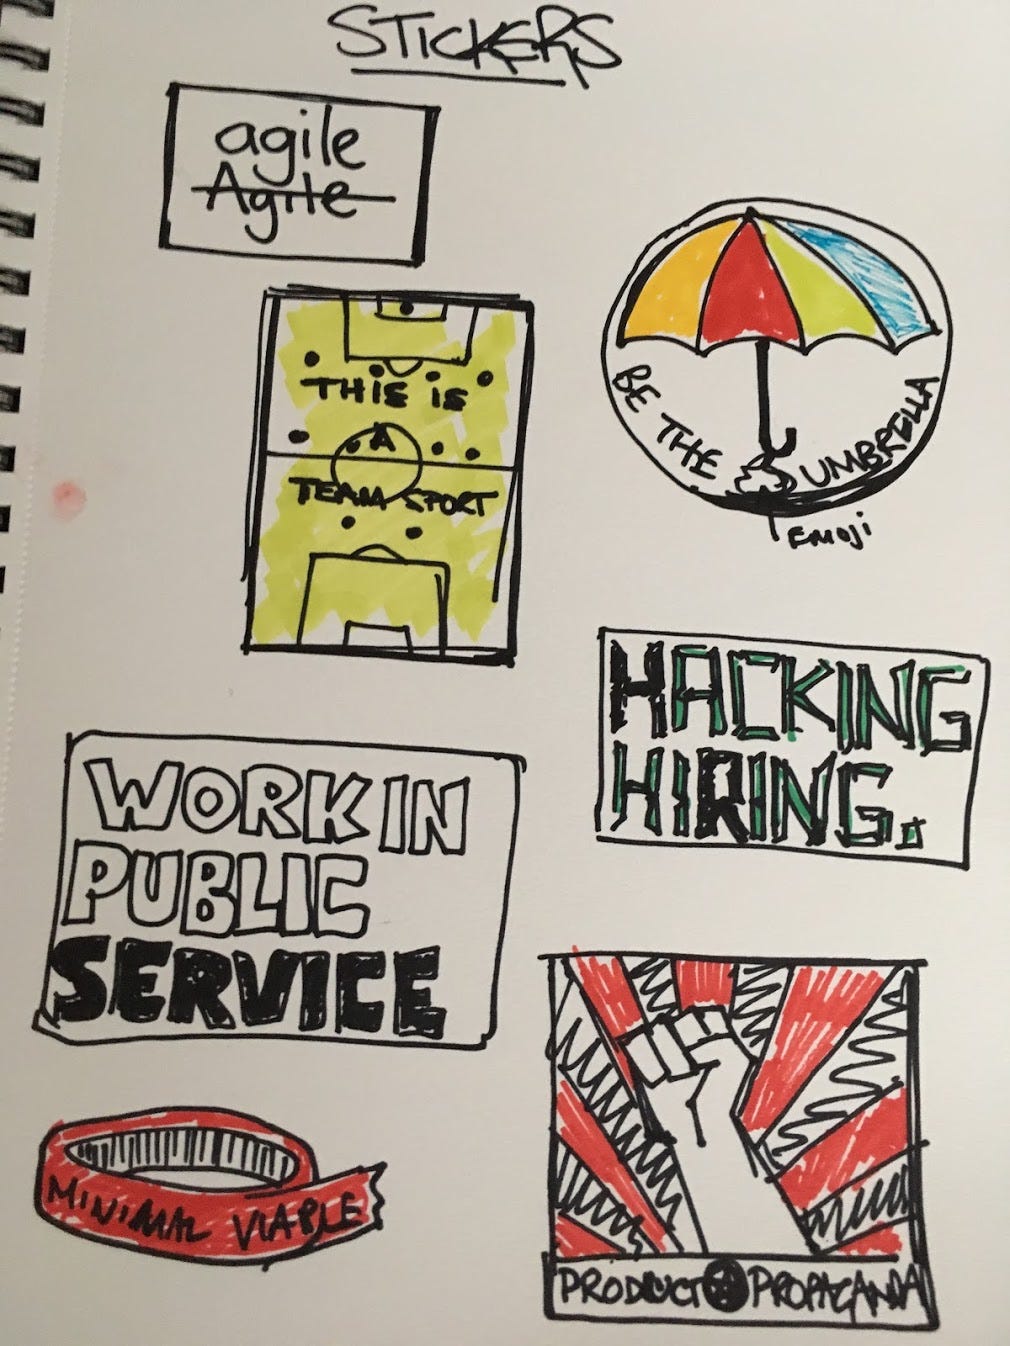 STICKERS
agile
Agile
THIS IS
A
TEAM SPORT
BE THE UMBRELLA
EMOJI
HACKING
HIRING.
WORK IN
PUBLIC
SERVICE
MINIMAL VIABLE
PRODUCT PROPAGANDA